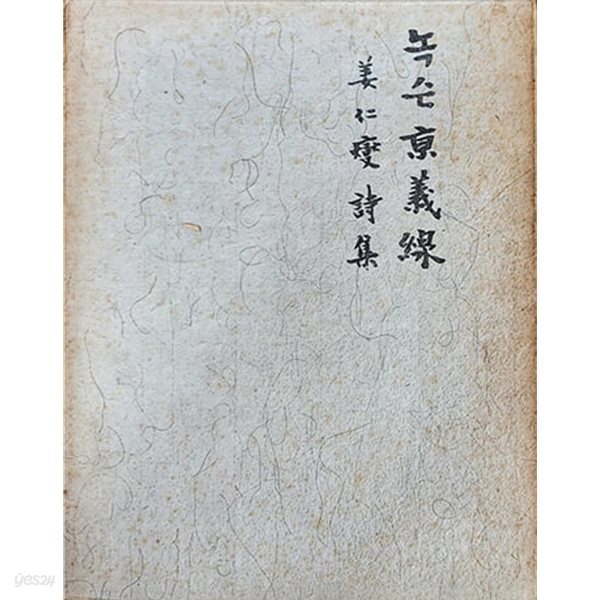 녹슨 京義線
姜仁燮 詩集
yes24